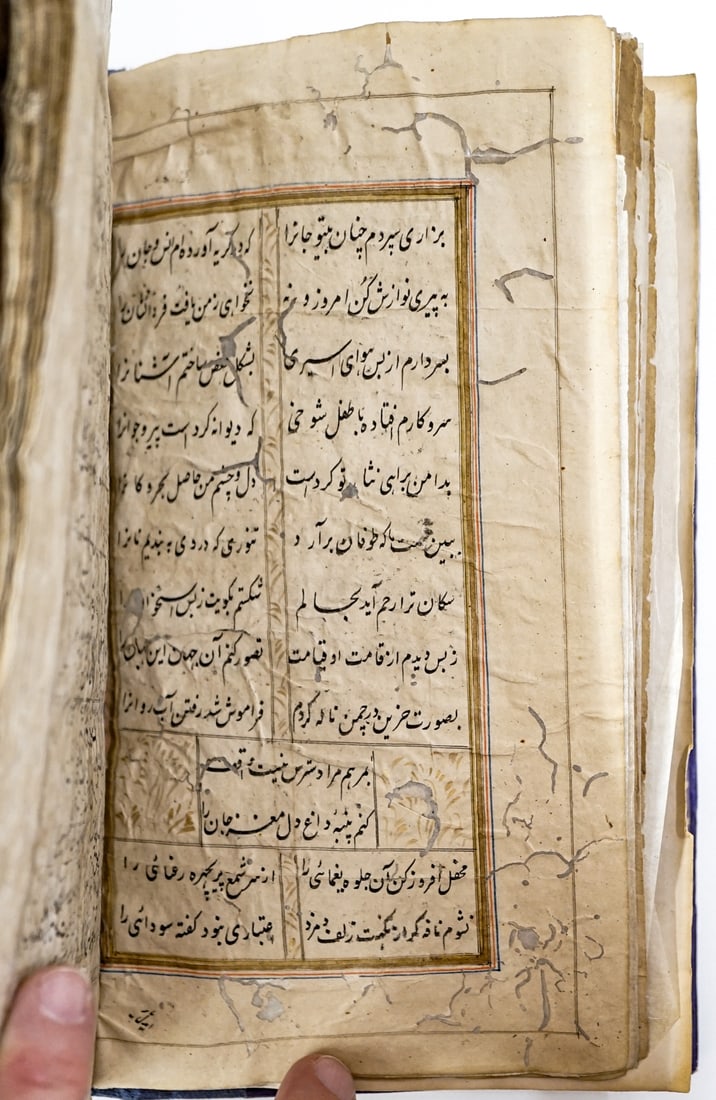 بزاری سپردم چنان بیتو جانرا که در گریه آوردم انس و جان را
به پیری نوازش کن امروز و نخواهی ز من یافت فردا نشان را
بسر دارم از بس هوای اسیری بشکل قفس ساختم آشیانرا
سر و کارم افتاده با طفل شوخی که دیوانه کردست پیر و جوانرا
بدامن برای نثار تو کردست دل و چشم من حاصل بحر و کانرا
ببین که طوفان برآرد تنوری که دردی به بندیم نانرا
سکان ترا رحم آید بحالم شکستم بکویت ز بس استخوان
ز بس دیدم از قامت او قیامت تصور کنم آن جهان این جهان را
بصورت حزین در چمن ناله کردم فراموش شد رفتن آب روانرا
بمرهم مرا دسترس نیست
کنم پنبه داغ دل مغز جان را
محفل افروز کن آن جلوه یغمائی را از سر شمع ببر چهره رعنائی را
نشوم نافه گر از نکهت زلف دم زد اعتباری نبود گفته سودائی را